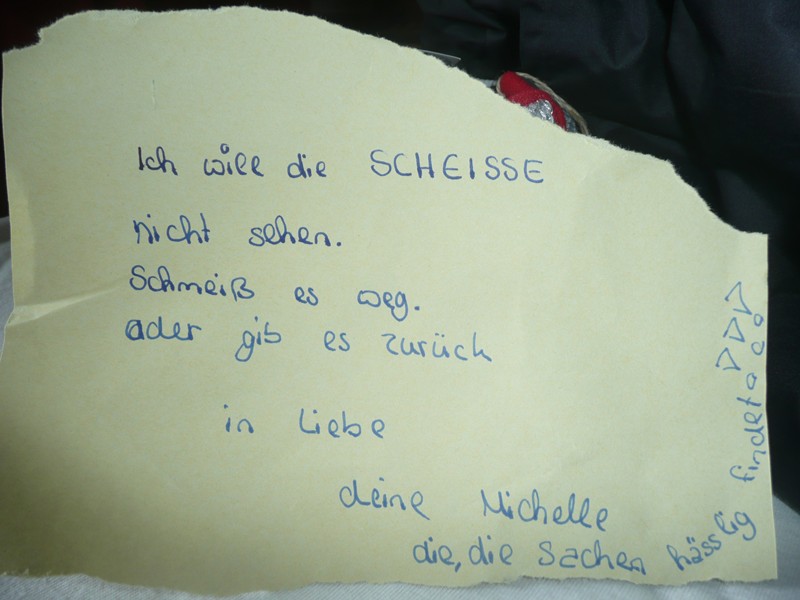 Ich will die SCHEISSE
nicht sehen.
Schmeiß es weg.
oder gib es zurück
in Liebe
deine Michelle
die, die Sachen hässlig findet!!!